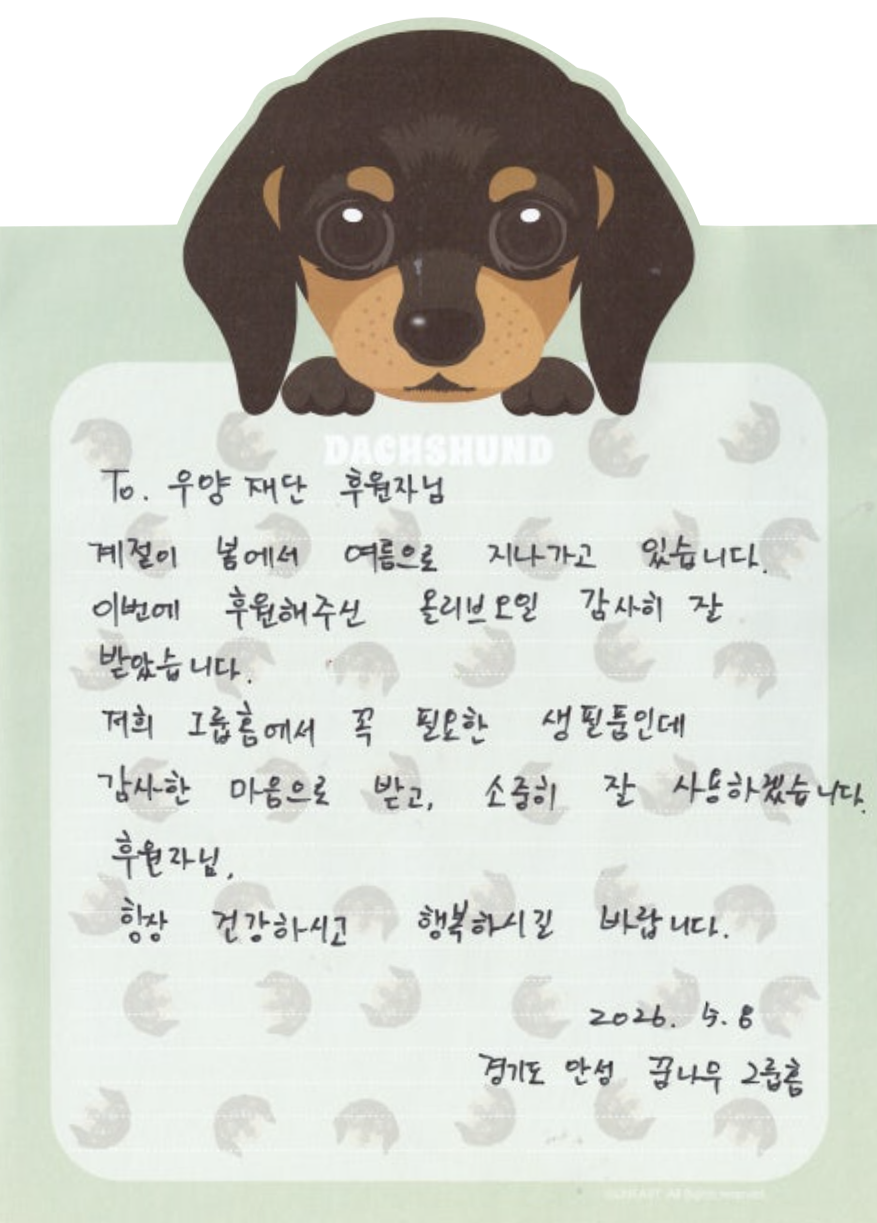 DACHSHUND
To. 우양 재단 후원자님
계절이 봄에서 여름으로 지나가고 있습니다.
이번에 후원해주신 올리브오일 감사히 잘
받았습니다.
저희 그룹홈에서 꼭 필요한 생필품인데
감사한 마음으로 받고, 소중히 잘 사용하겠습니다.
후원자님,
항상 건강하시고 행복하시길 바랍니다.
2026. 5. 8
경기도 안성 꿈나무 그룹홈
All rights reserved.